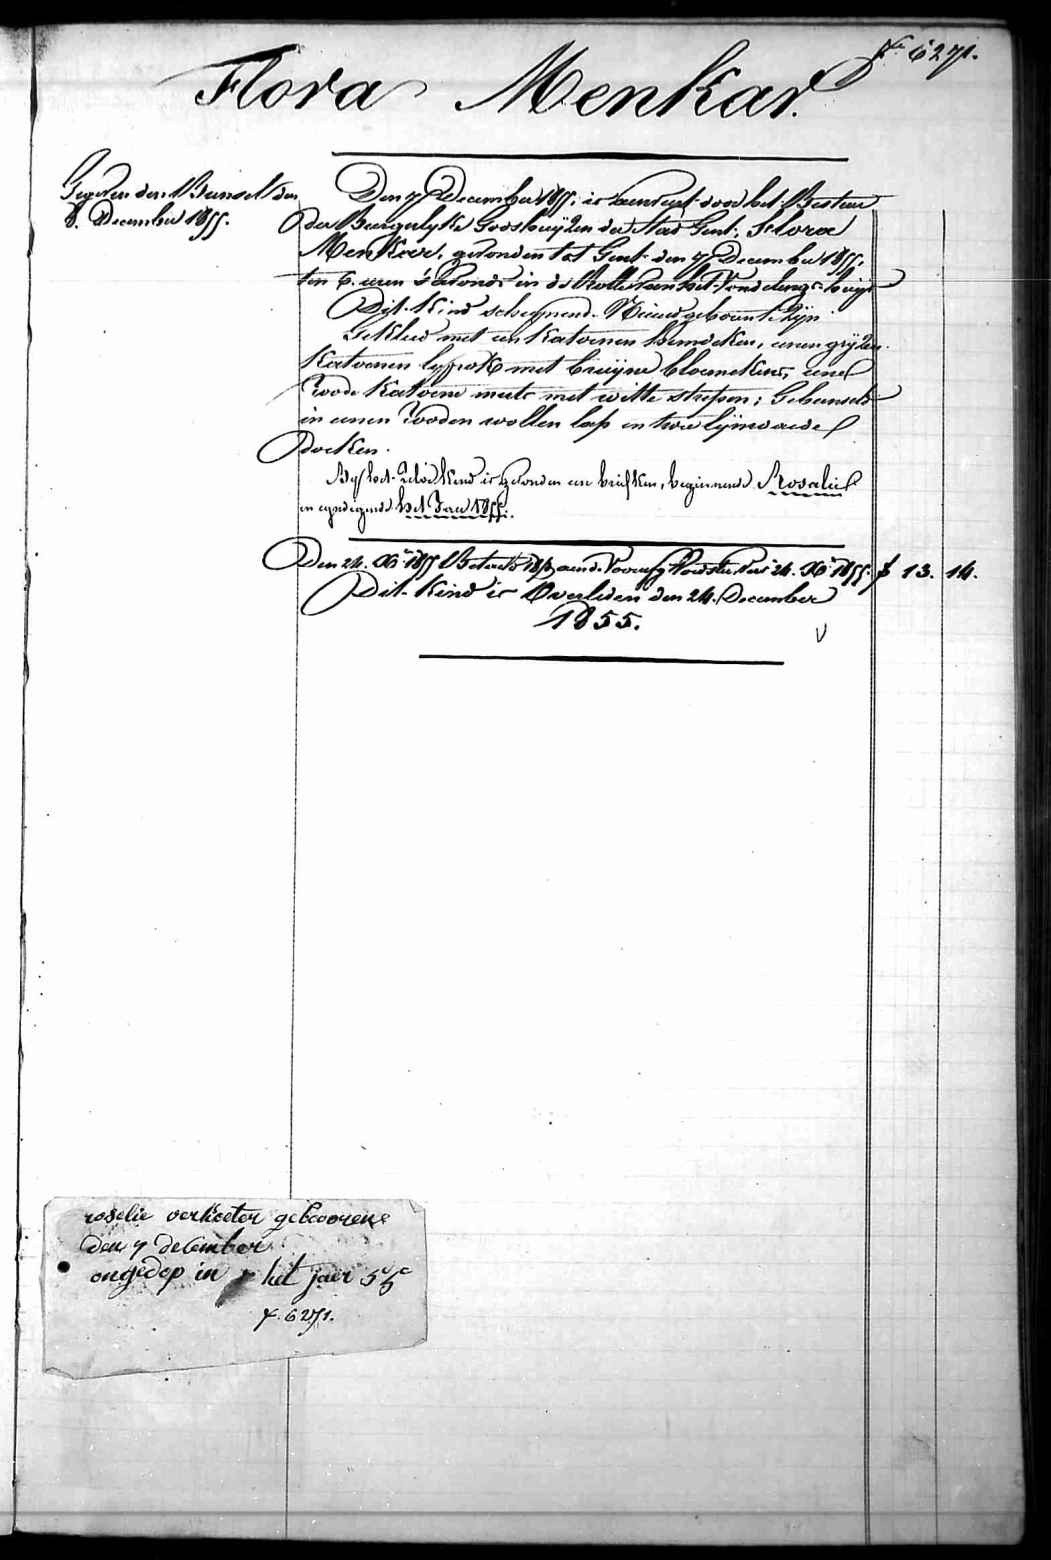 f° 6271.
Flora Menkar.
den
8. December 1855.
Den 7 December 1855 is door het Bestuer
der Burgerlyke Godshuijzen der Stad Gent, Flora
Menkar, gevonden tot Gent den 7 December 1855,
ten 6. uren 's avonds in de Rolle van het Vondelings-huijs
Dit Kind schynend Nieuwgeboren te zyn
Gekleed met een Katoenen hemdeken, eenen gryzen
Katoenen lyfrok met bruyne bloemekens, eene
roode Katoene muts met witte strepen; Gebunseld
in eenen rooden wollen lap en twee lijnwaede
doeken.
By het zelve Kind is gevonden een briefken, beginnende Rosalie
en eyndigende het Jaer 1855.
Den 24. Xb 1855 Betaeld 24. Xb 1855. f 13. 14.
Dit Kind is Overleden den 24. December
1855.
roselie verkoeter gebooren
den 7 december
ongedop in het jaer 55
f. 6271.